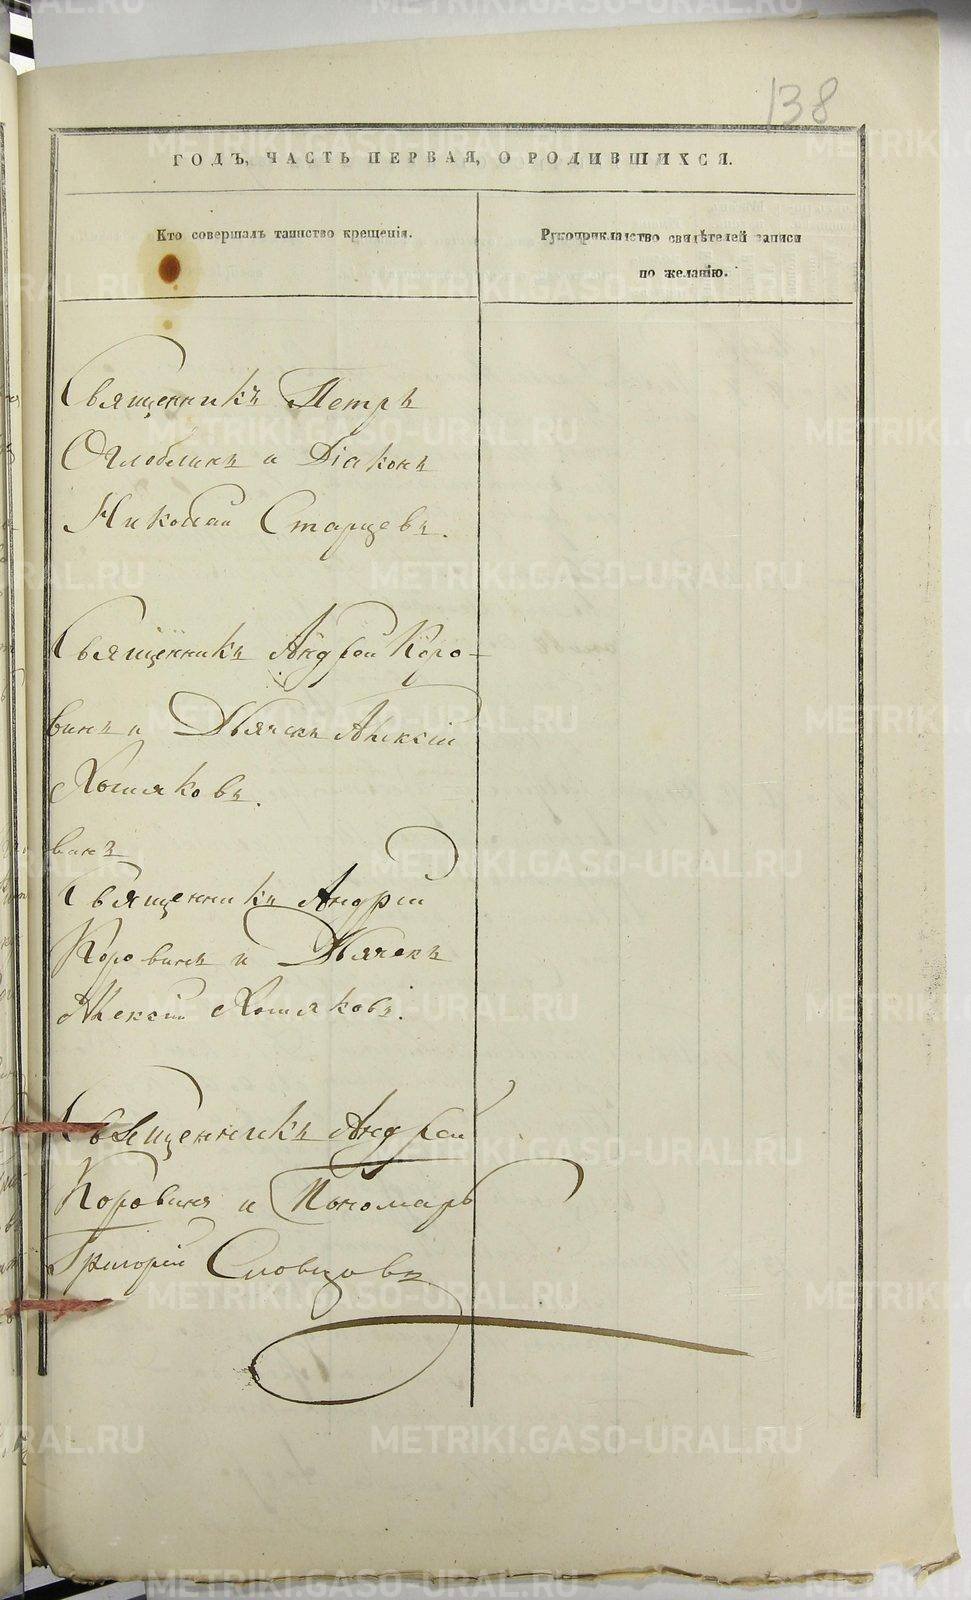 138
ГОДЪ, ЧАСТЬ ПЕРВАЯ, О РОДИВШИХСЯ.
Кто совершалъ таинство крещенія.
Рукоприкладство свидѣтелей записи
по желанію.
Священникъ Петръ
Оглоблинъ и Діаконъ
Николай Старцевъ.
Священникъ Андрей Коро-
винъ и Дьячекъ Алексій
Хомяковъ.
винъ
Священникъ Андрей
Коровинъ и Дьячекъ
Алексій Хомяковъ.
Священникъ Андрей
Коровинъ и Пономарь
Григорій Словцовъ
METRIKI.GASO-URAL.RU